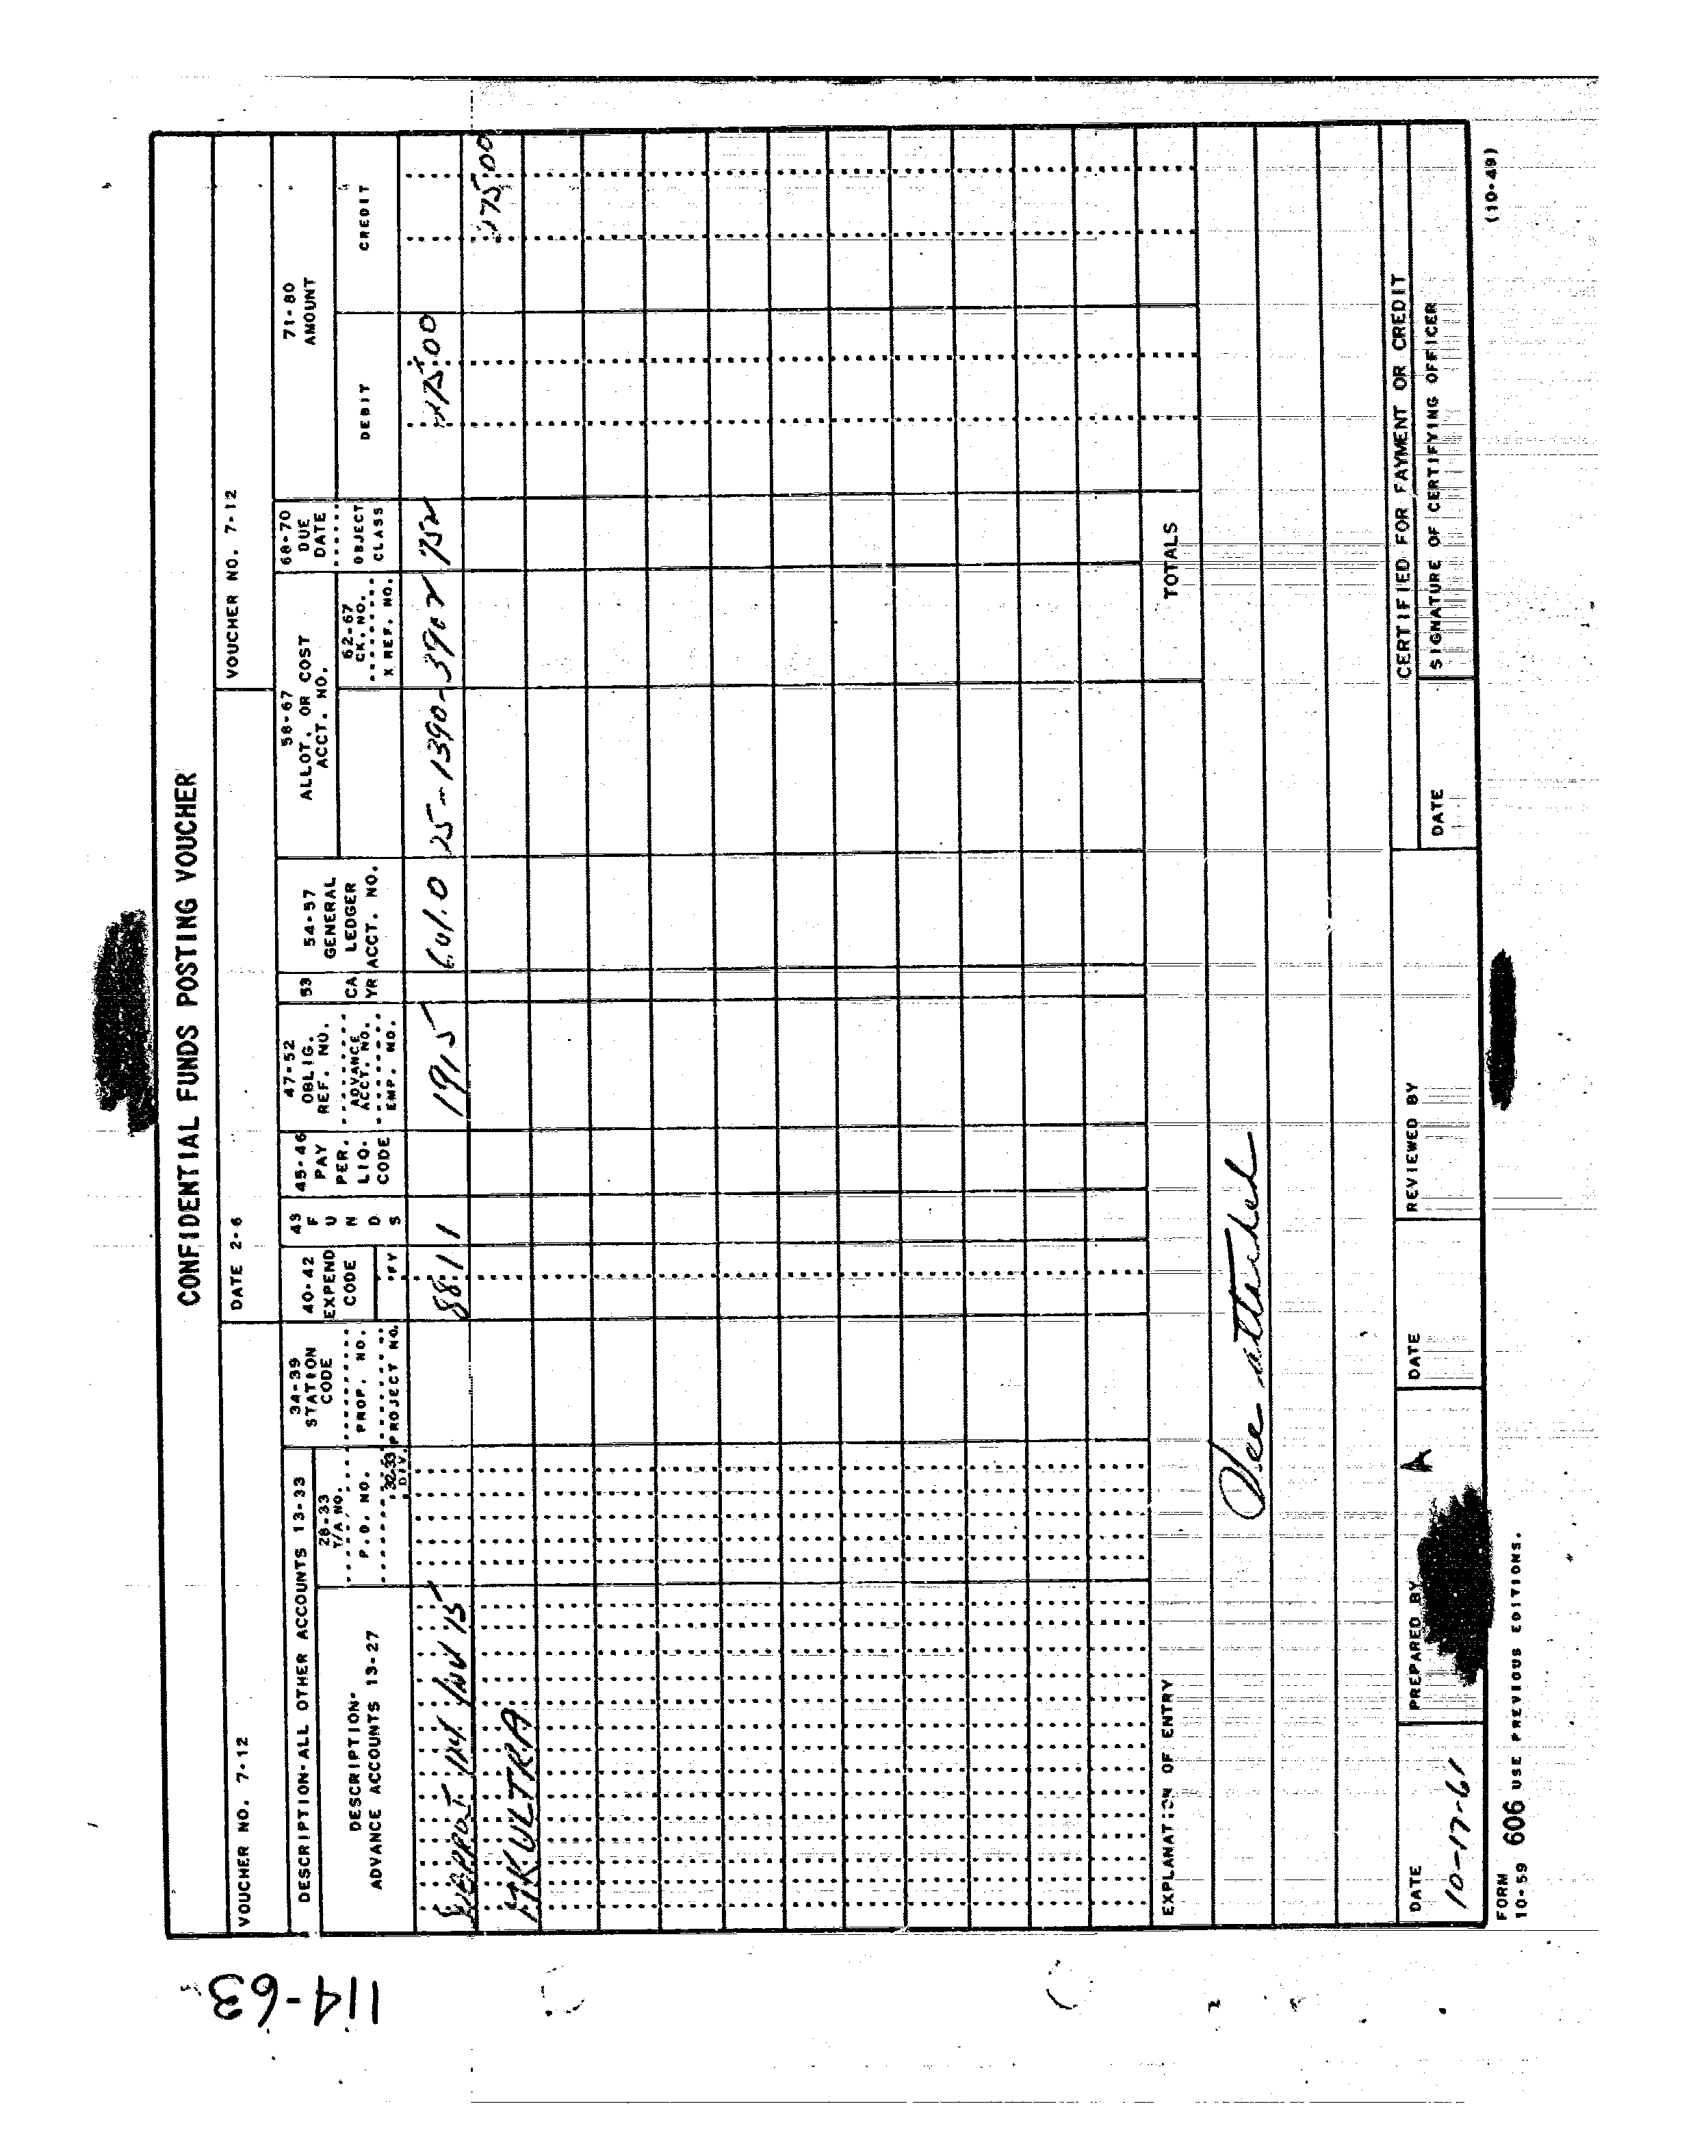 CONFIDENTIAL FUNDS POSTING VOUCHER
VOUCHER NO. 7-12
DATE 2-6
VOUCHER NO. 7-12
DESCRIPTION-ALL OTHER ACCOUNTS 13-33
DESCRIPTION-
ADVANCE ACCOUNTS 13-27
28-33
T/A NO.
P.O. NO.
32-33
DIV.
34-39
STATION
CODE
PROP. NO.
PROJECT NO.
40-42
EXPEND
CODE
FY
43
F
U
N
D
S
45-46
PAY
PER.
LIQ.
CODE
47-52
OBLIG.
REF. NO.
ADVANCE
ACCT. NO.
EMP. NO.
53
CA
YR
54-57
GENERAL
LEDGER
ACCT. NO.
58-67
ALLOT. OR COST
ACCT. NO.
62-67
CK. NO.
X REF. NO.
68-70
DUE
DATE
OBJECT
CLASS
71-80
AMOUNT
DEBIT
CREDIT
114 INV 15 8811 1915 601.0 25-1390-3902 752
MKULTRA
TOTALS
EXPLANATION OF ENTRY
See attached
CERTIFIED FOR PAYMENT OR CREDIT
DATE
10-17-61
PREPARED BY
A
DATE
REVIEWED BY
DATE
SIGNATURE OF CERTIFYING OFFICER
FORM
10-59 606 USE PREVIOUS EDITIONS.
(10-49)
114-63